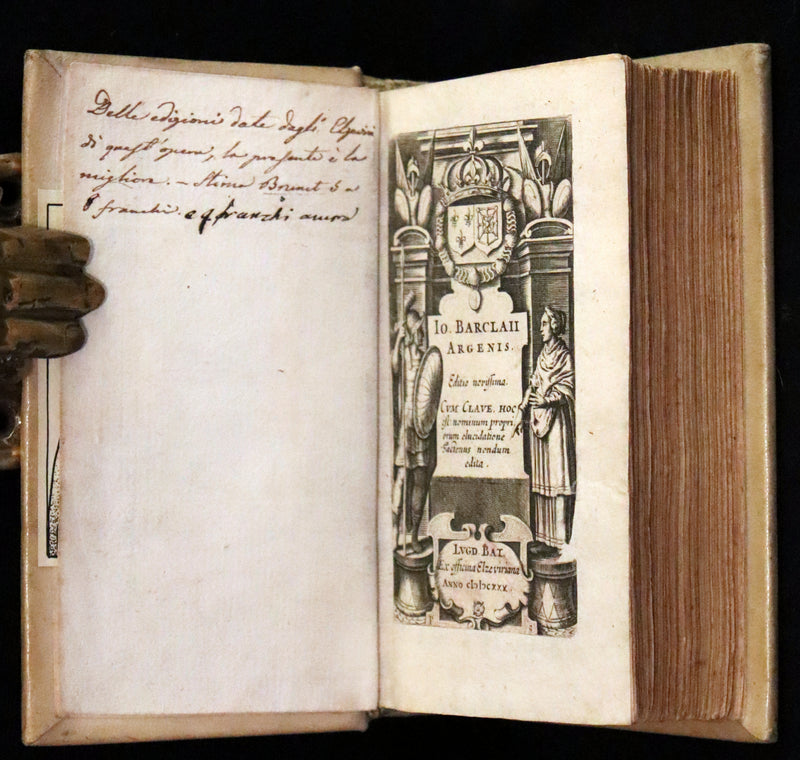 Delle edizioni date dagli Elzeviri
di quest'opera, la presente è la
migliore. – Stima Brunet 5 a
8 franchi. a 9 franchi ancora
IO. BARCLAII
ARGENIS.
Editio novissima.
CVM CLAVE, HOC
est nominum propri
orum elucidatione
hactenus nondum
edita.
LVGD. BAT.
Ex officina Elzeviriana
ANNO CIƆIƆCXXX.